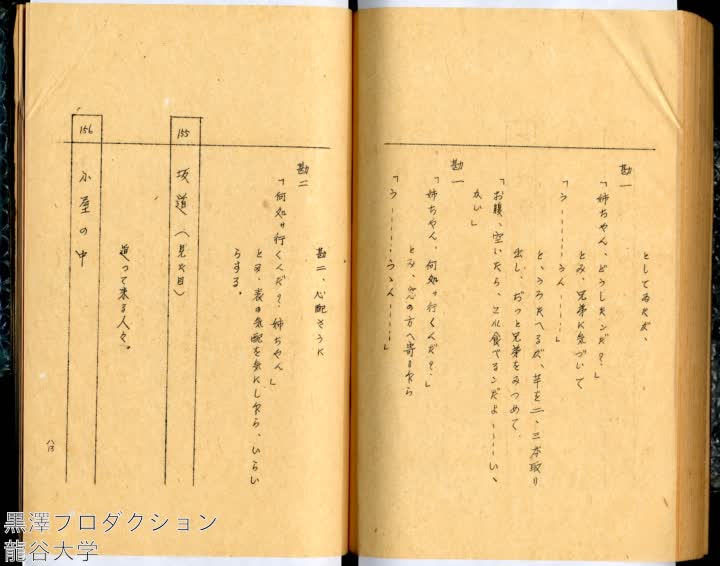 としてゐたが、
勘一
「姉ちやん、どうしたンだ?」
とみ、兄弟に気づいて
「う――――うん――――」
と、うろたへるが、芋を二、三本取り
出し、ぢつと兄弟をみつめて
「お腹、空いたら、コレ食べるンだよ――――いゝ
かい」
勘一
「姉ちやん、何処け行くんだ?」
とみ、窓の方へ寄り乍ら
「う――――うゝん――――」
勘二、心配さうに
勘二
「何処け行くんだ?姉ちやん」
とみ、表の気配を気にし乍ら、いらい
らする。
155 坂道(見た目)
迫つて来る人々。
156 小屋の中
八ノ13
黒澤プロダクション
龍谷大学